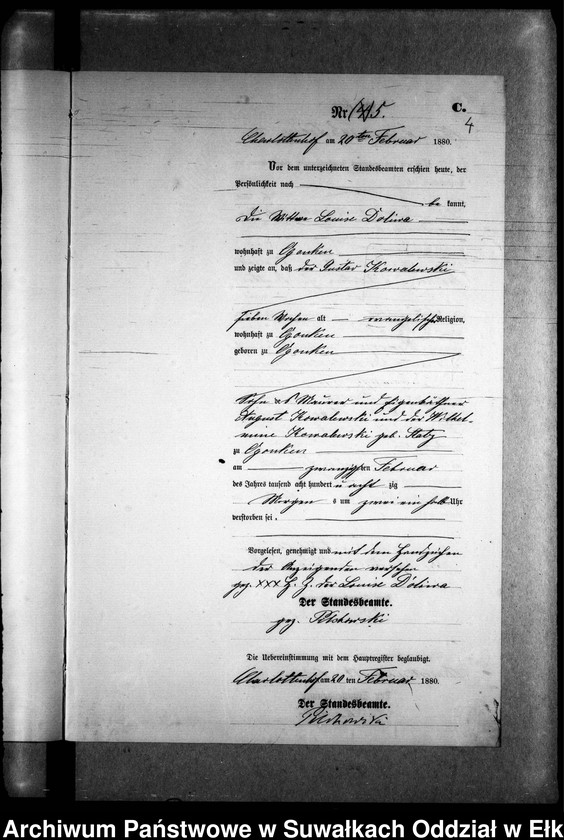 Nr. 5.
C.
4
Charlottenhof am 20ten Februar 1880.
Vor dem unterzeichneten Standesbeamten erschien heute, der
Persönlichkeit nach
be kannt,
die Wittwe Louise Doliwa
wohnhaft zu Gonsken
und zeigte an, daß der Gustav Kowalewski
sieben Wochen alt evangelischer Religion,
wohnhaft zu Gonsken
geboren zu Gonsken
Sohn des Maurer und Eigenkäthner
August Kowalewski und der Wilhel-
mine Kowalewski geb.
zu Gonsken
am zwanzigsten Februar
des Jahres tausend acht hundert u acht zig
Morgens um zwei ein halb Uhr
verstorben sei.
Vorgelesen, genehmigt und mit dem Handzeichen
der Anzeigenden versehen
gez. XXX H. Z. der Louise Doliwa
Der Standesbeamte.
gez.
Die Uebereinstimmung mit dem Hauptregister beglaubigt.
Charlottenhof am 20 ten Februar 1880.
Der Standesbeamte.
Archiwum Państwowe w Suwałkach Oddział w Ełk